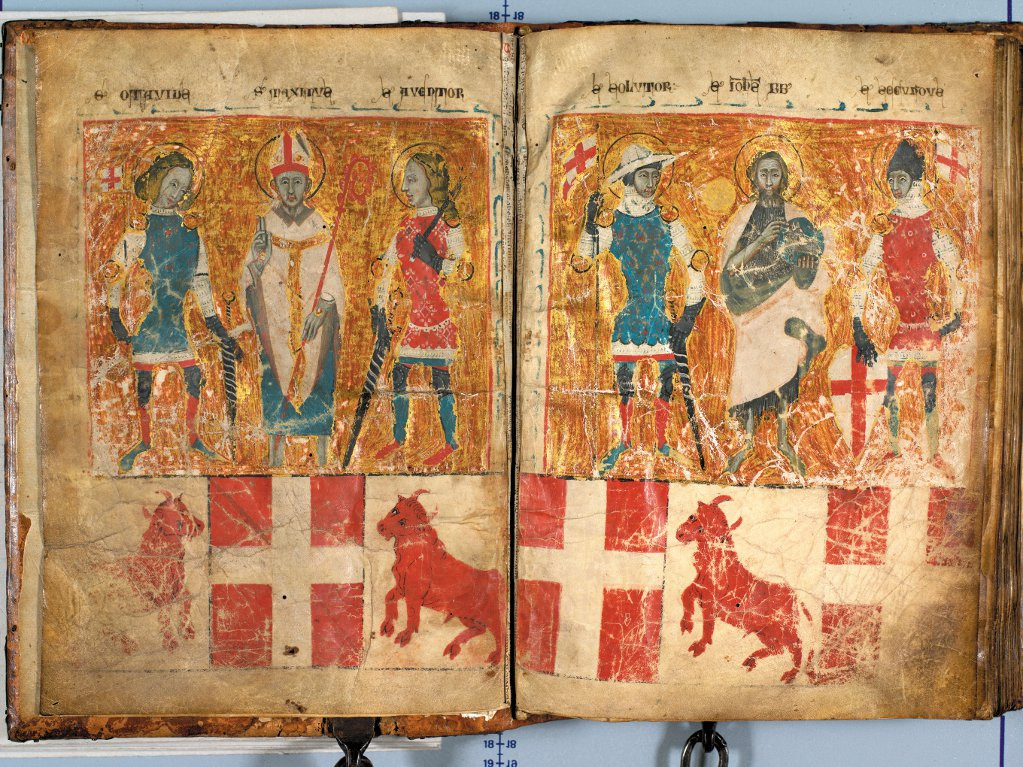 S' OTAVIUS S' MAXIMUS S' AVENTOR
S' SOLUTOR: S' IOħS BB' S' SECUNDUS
18 18
18 18
19 19